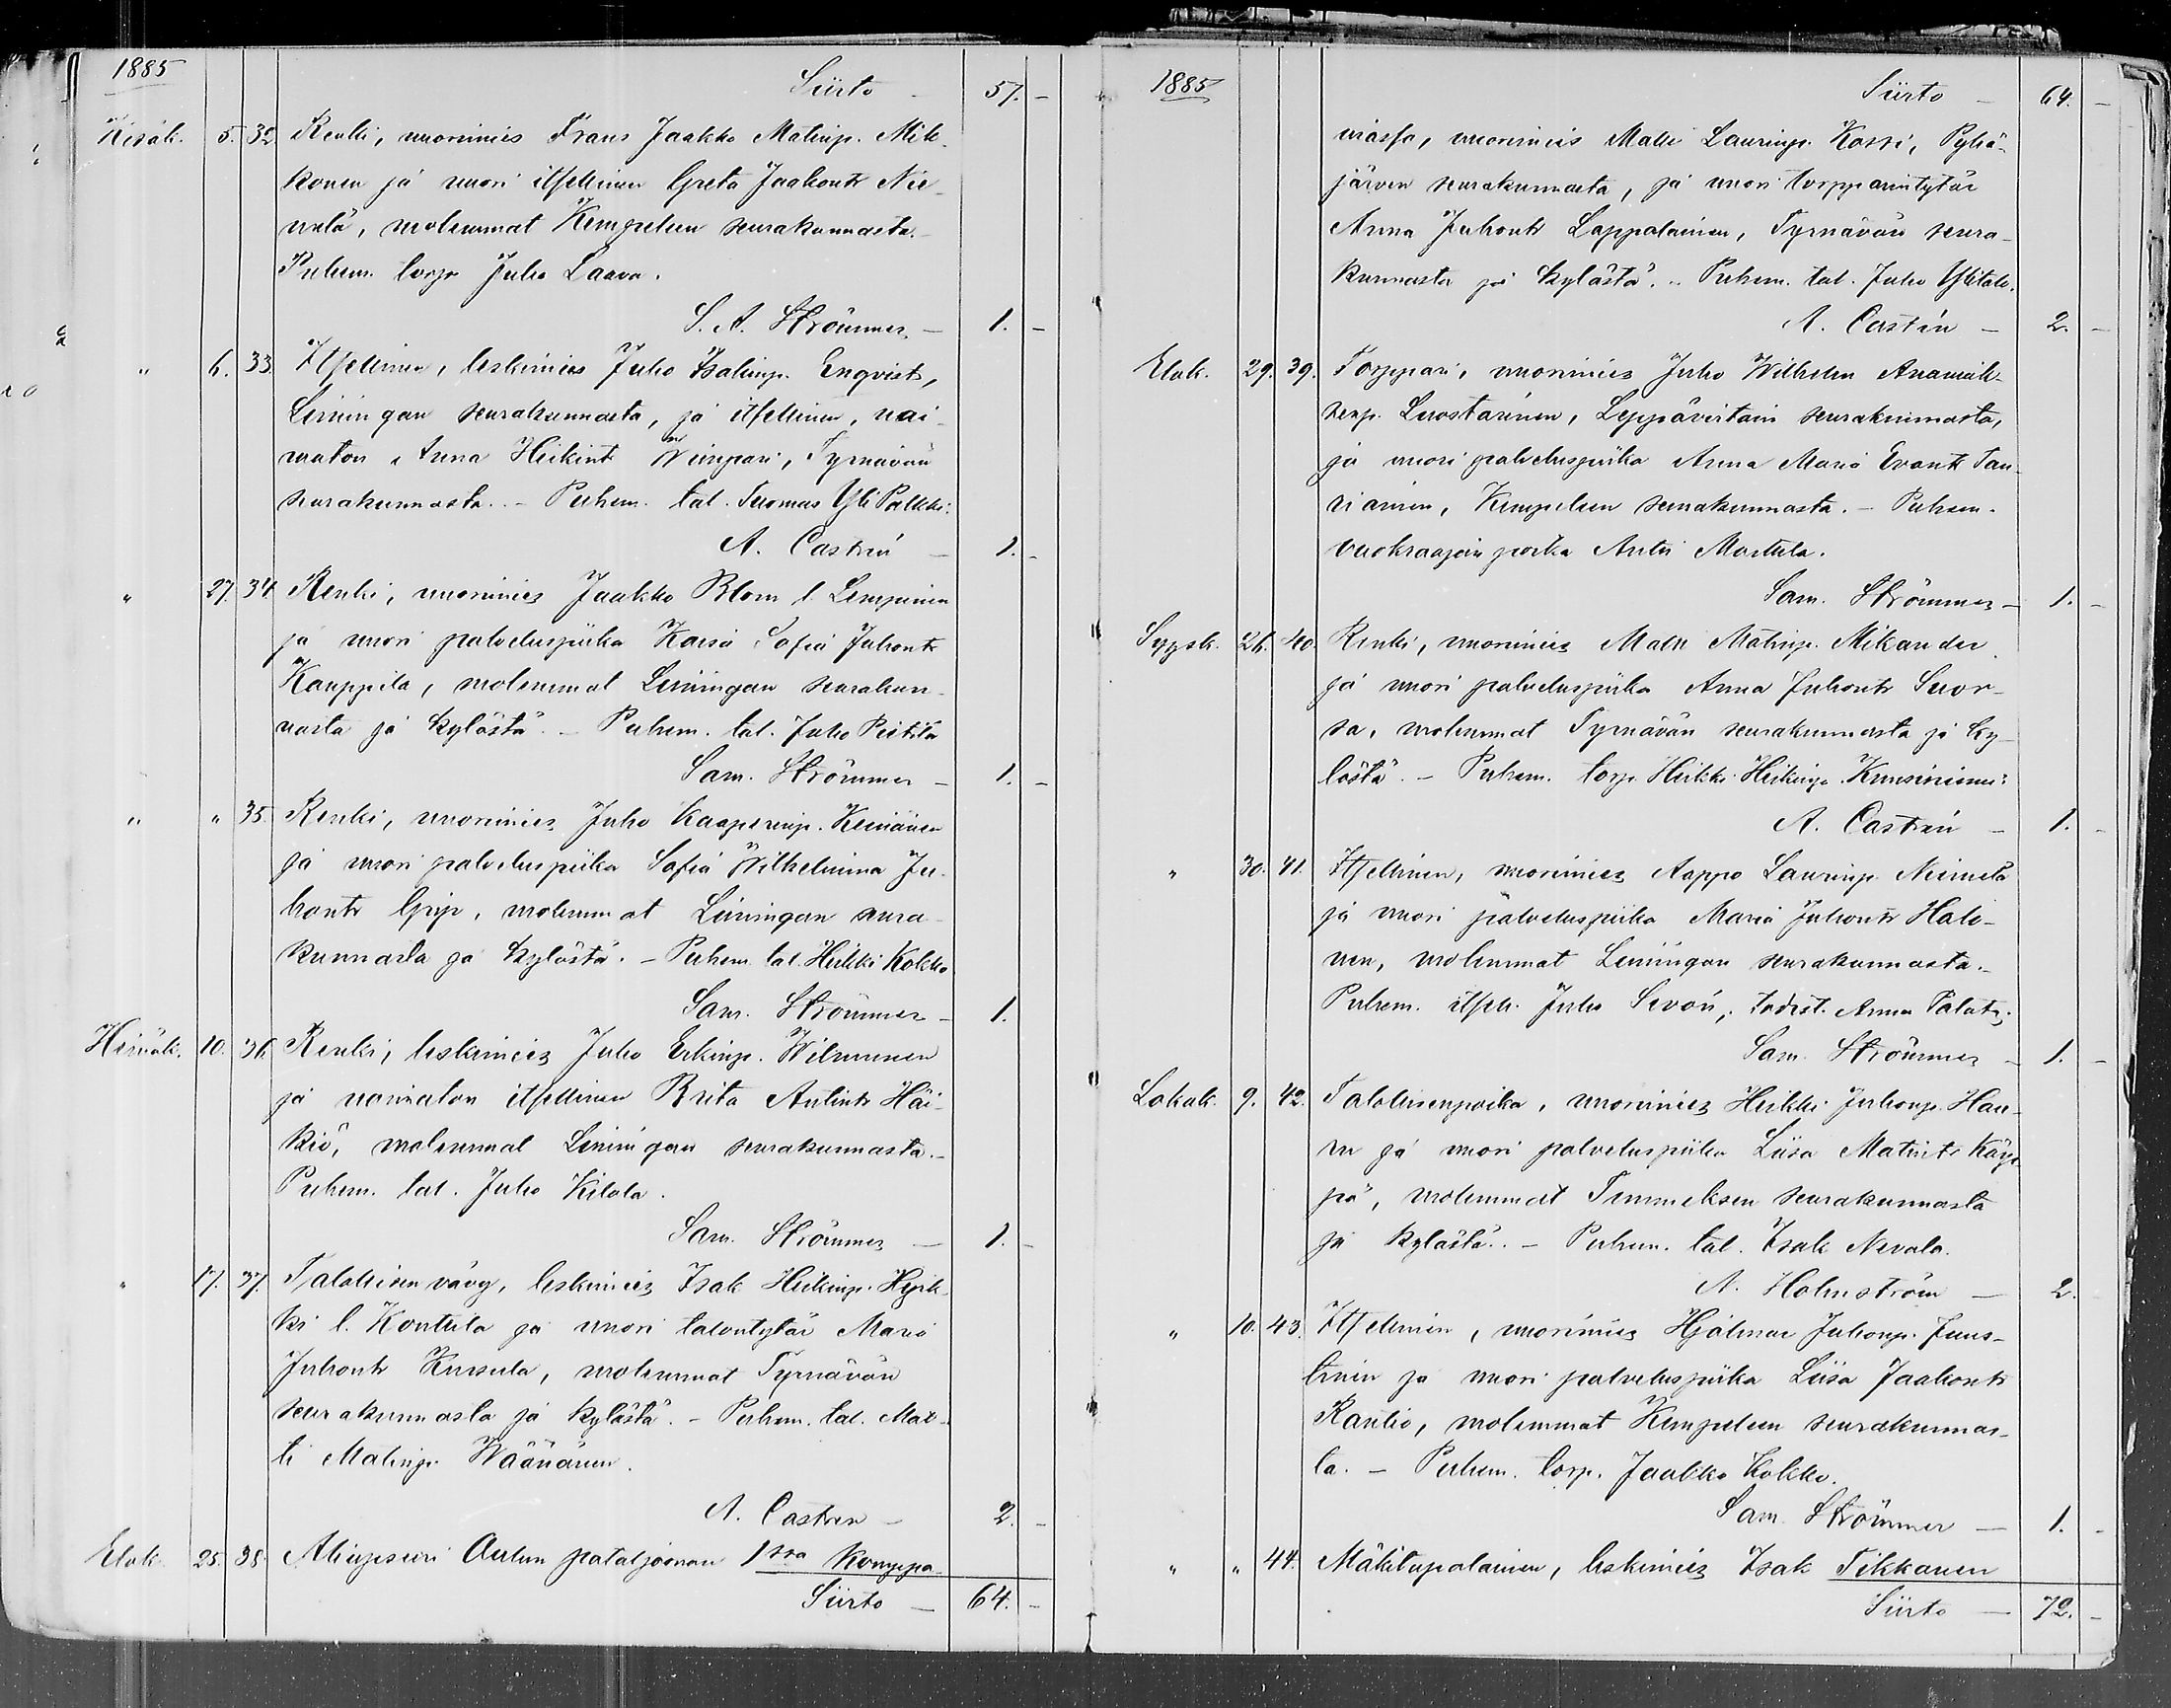 1885
Siirto - 57. -
Kesäk. 5. 32. Renki, nuorimies Frans Jaakko Matinp. Mik-
konen ja nuori itsellinen Greta Jaakontr Nie-
melä, molemmat Kempeleen seurakunnasta.
Puhem. torp. Juho Laava.
S. A. Strömmer - 1. -
" 6. 33. Itsellinen, leskimies Juho Isakinp. Enqvist,
Limingan seurakunnasta, ja itsellinen, nai-
maton Anna Heikintr Wimpari, Tyrnävän
seurakunnasta. - Puhem. tal. Tuomas Yli Palkki.
A. Castrén - 1. -
" 27. 34. Renki, nuorimies Jaakko Blom l. Lempinen
ja nuori palveluspiika Kaisa Sofia Juhontr
Kauppila, molemmat Limingan seurakun-
nasta ja kylästä. - Puhem. tal. Juho Pietilä
Sam. Strömmer - 1. -
" " 35. Renki, nuorimies Juho Kaaperinp. Keinänen
ja nuori palveluspiika Sofia Wilhelmina Ju-
hontr Grip, molemmat Limingan seura-
kunnasta ja kylästä. - Puhem. tal. Heikki Kokko
Sam. Strömmer - 1.
Heinäk. 10. 36. Renki, leskimies Juho Erkinp. Wilmunen
ja naimaton itsellinen Brita Antintr Häi-
kiö, molemmat Limingan seurakunnasta. -
Puhem. tal. Juho Kilola.
Sam. Strömmer - 1. -
" 17. 37. Talollisen vävy, leskimies Isak Heikinp. Hyrk-
ki l. Konttila ja nuori talontytär Maria
Juhontr Kursula, molemmat Tyrnävän
seurakunnasta ja kylästä. - Puhem. tal. Mat-
ti Matinp. Väänänen.
A. Castren - 2. -
Elok. 25. 38. Aliupseeri Oulun pataljoonan 1ssa komppa-
Siirto - 64. -
1885
Siirto - 64. -
niassa, nuorimies Matti Laurinp. Kossi, Pyhä-
järven seurakunnasta, ja nuori torpparintytär
Anna Juhontr Lappalainen, Tyrnävän seura-
kunnasta ja kylästä. - Puhem. tal. Juho Ylitalo.
A. Castrén - 2. -
Elok. 29. 39. Torppari, nuorimies Juho Wilhelm Ananiak-
senp. Luostarinen, Leppävirtain seurakunnasta,
ja nuori palveluspiika Anna Maria Evantr Tau-
riainen, Kempeleen seurakunnasta. - Puhem.
vuokraajan poika Antti Marttila.
Sam. Strömmer - 1. -
Syysk. 26. 40. Renki, nuorimies Matti Matinp. Mikander
ja nuori palveluspiika Anna Juhontr Suor-
sa, molemmat Tyrnävän seurakunnasta ja ky-
lästä. - Puhem. torp. Heikki Heikinp. Kuusiniemi.
A. Castrén - 1. -
" 30. 41. Itsellinen, nuorimies Aappo Laurinp. Niemelä
ja nuori palveluspiika Maria Juhontr Halo-
nen, molemmat Limingan seurakunnasta. -
Puhem. itsell. Juho Sivón, todist. Anna
Sam. Strömmer - 1. -
Lokak. 9. 42. Talollisenpoika, nuorimies Heikki Juhonp. Hau-
ru ja nuori palveluspiika Liisa Matintr Käyp-
pä, molemmat Temmeksen seurakunnasta
ja kylästä. - Puhem. tal. Isak Nevala.
A. Holmström - 2.
" 10. 43. Itsellinen, nuorimies Hjalmar Juhonp. Juus-
tinen ja nuori palveluspiika Liisa Jaakontr
Rautio, molemmat Kempeleen seurakunnas-
ta. - Puhem. torp. Jaakko Kokko.
Sam. Strömmer - 1. -
" " 44. Mäkitupalainen, leskimies Isak Tikkanen
Siirto - 72. -